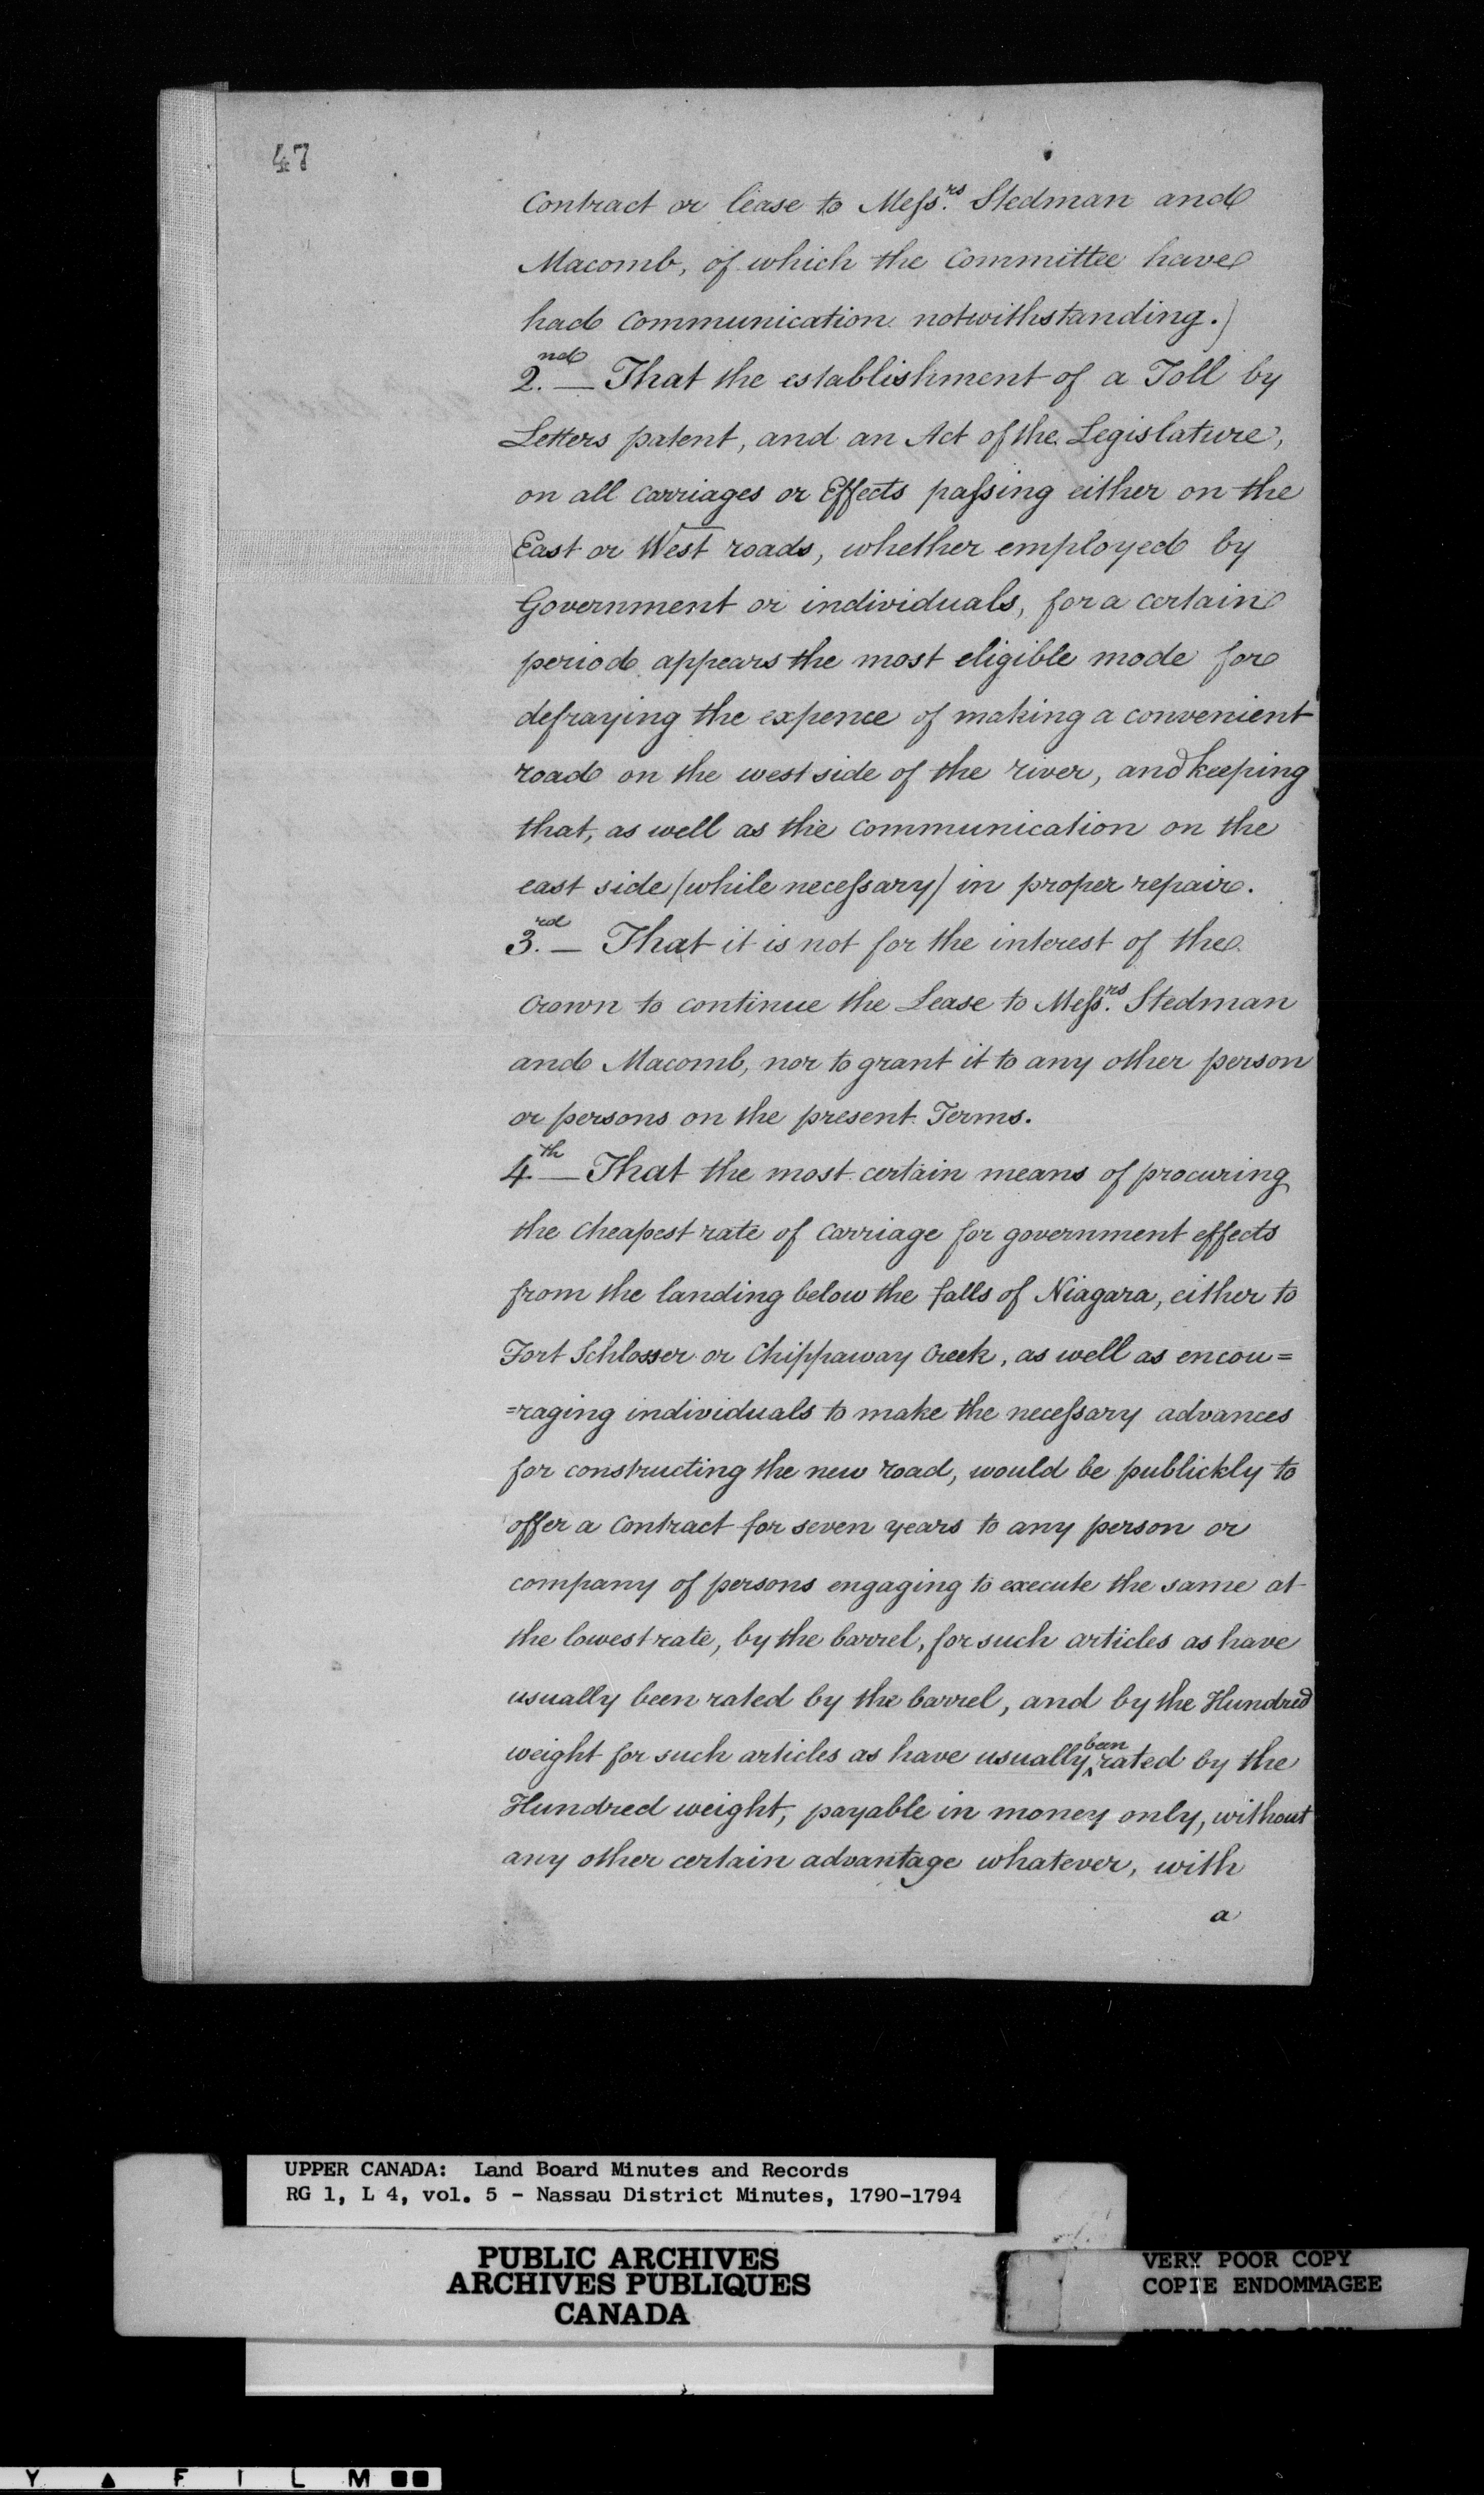 47
Contract or lease to Meſs.rs Stedman and
Macomb, of which the Committee have
had Communication notwithstanding.)
2.nd — That the establishment of a Toll by
Letters patent, and an Act of the Legislature,
on all carriages or Effects paſsing either on the
East or West roads, whether employed by
Government or individuals, for a certain
period appears the most eligible mode for
defraying the expence of making a convenient
road on the west side of the river, and keeping
that, as well as the communication on the
east side (while neceſsary) in proper repair.
3.rd — That it is not for the interest of the
Crown to continue the Lease to Meſs.rs Stedman
and Macomb, nor to grant it to any other person
or persons on the present Terms.
4.th — That the most certain means of procuring
the cheapest rate of carriage for government effects
from the landing below the falls of Niagara, either to
Fort Schlosser or Chippaway Creek, as well as encou=
=raging individuals to make the neceſsary advances
for constructing the new road, would be publickly to
offer a Contract for seven years to any person or
company of persons engaging to execute the same at
the lowest rate, by the barrel, for such articles as have
usually been rated by the barrel, and by the Hundred
weight for such articles as have usually been rated by the
Hundred weight, payable in money only, without
any other certain advantage whatever, with
a
UPPER CANADA: Land Board Minutes and Records
RG 1, L 4, vol. 5 - Nassau District Minutes, 1790-1794
PUBLIC ARCHIVES
ARCHIVES PUBLIQUES
CANADA
VERY POOR COPY
COPIE ENDOMMAGEE
VERY POOR COPY
Y ▲ F I L M